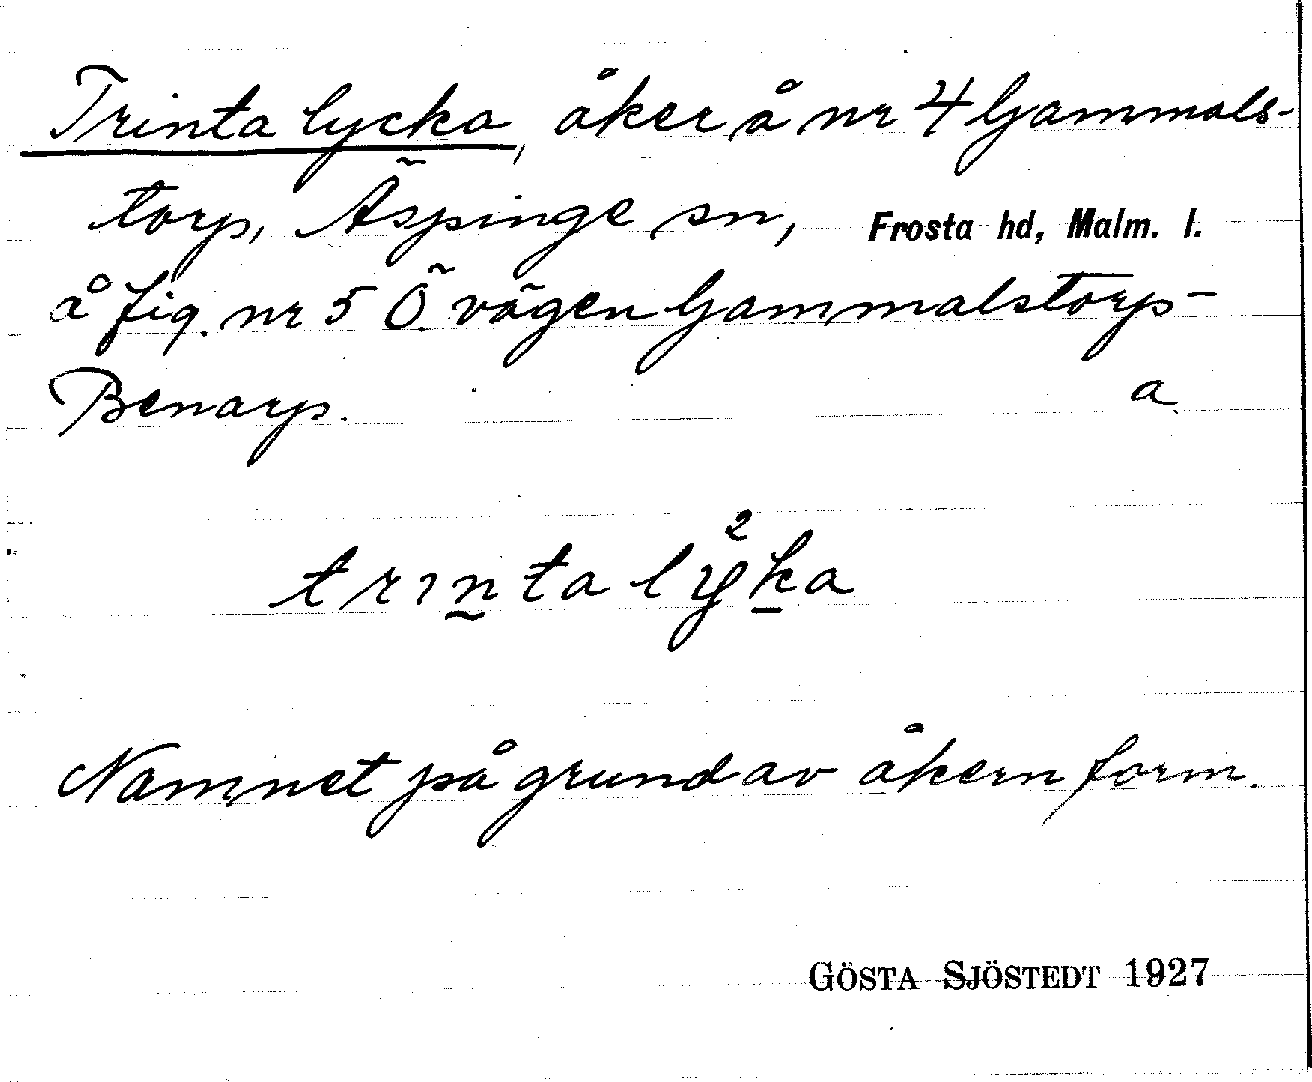 Trinta lycka, åker å nr 4 Gammals-
torp, Äspinge sn, Frosta hd, Malm. l.
å fig. nr 5 Ö. vägen Gammalstorp-
Benarp. a.
trın̰ta lyk̲a
2
Namnet på grund av åkern form.
GÖSTA SJÖSTEDT 1927